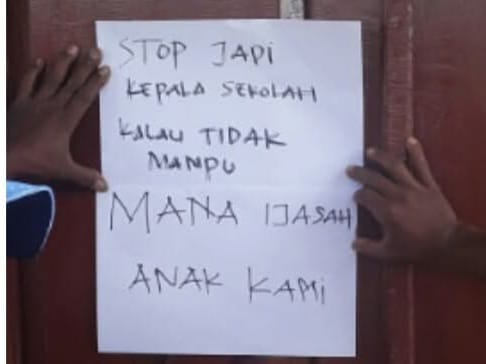 STOP JADI
KEPALA SEKOLAH
KALAU TIDAK
MAMPU
MANA IJASAH
ANAK KAMI